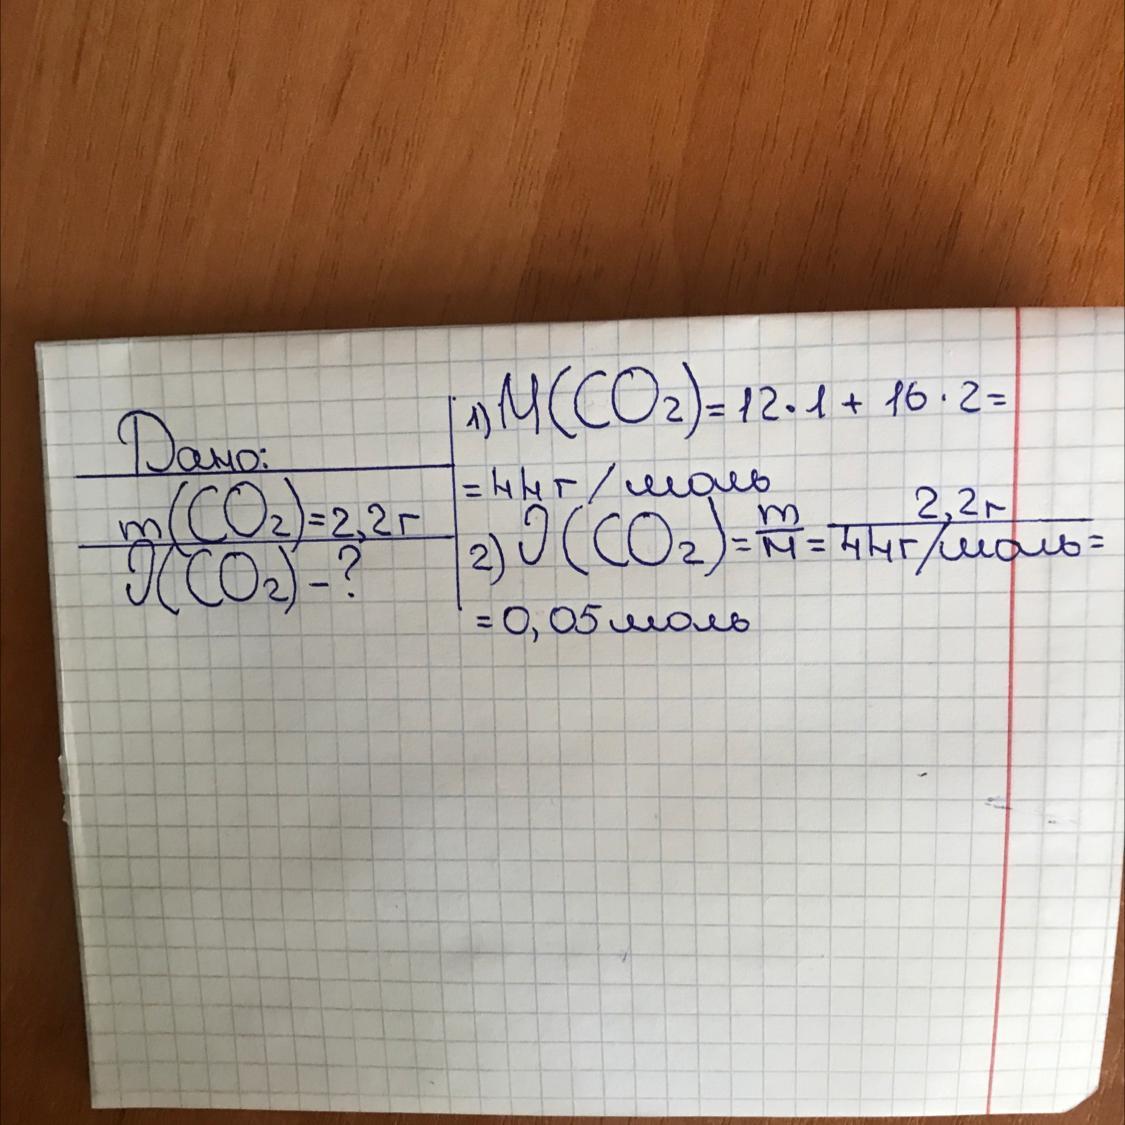 Дано:
m(CO₂)=2,2г
ν(CO₂)-?
1) M(CO₂)=12·1+16·2=
=44г/моль
2) ν(CO₂)=m/M=2,2г/44г/моль=
=0,05моль